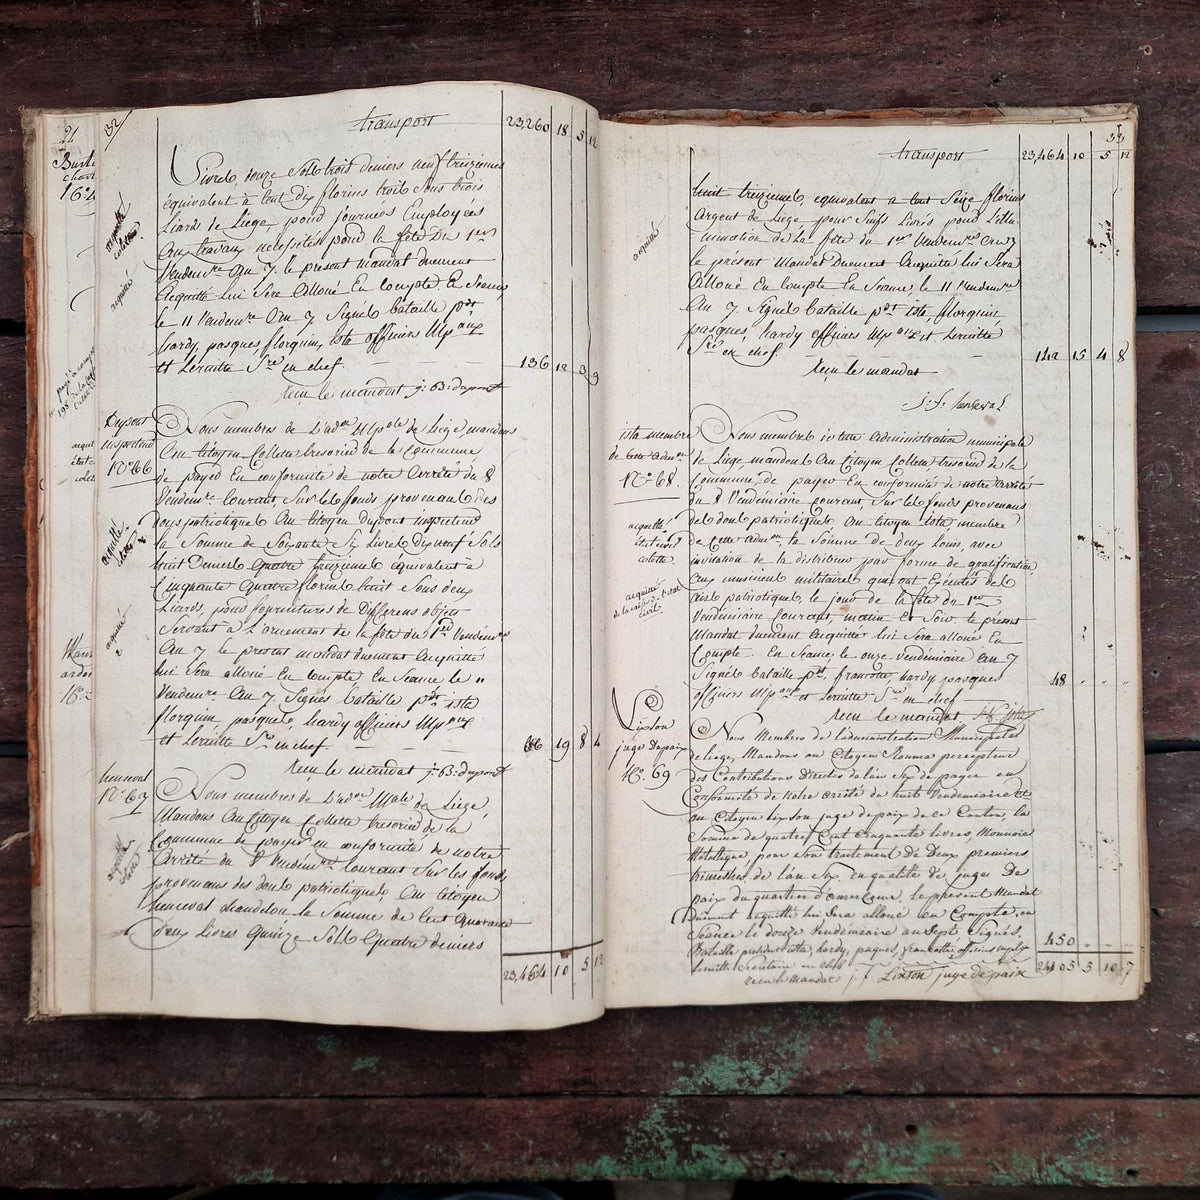 32
transport 23,260 18 5 12
Livres, douze Sols trois deniers neuf treiziemes
equivalent à Cent dix florins trois Sous trois
Liards de Liège, pour journées Employées
Aux travaux necessités pour la fête Du 1er
Vendemre An 7. le present mandat duement
Acquitté lui Sera Alloué En Compte En Seance
le 11 Vendemre An 7 Signés bataille pdt
hardy, pasques florquin, ista officiers Mpaux
et Leruitte Sre en chef 136 12 3 9
Recu le mandat j: B: dupont
Dupont
inspecteur
N° 66
Nous membres de L'admon Mpale de Liège, mandons
Au Citoyen Collette tresorier de la Commune
de payer En conformité de notre Arrêté du 8
Vendemre Courant, Sur les fonds provenant des
dons patriotiques Au Citoyen Dupont inspecteur
la Somme de Soixante Six Livres Dix neuf Sols
huit Deniers Quatre treiziemes equivalent à
Cinquante Quatre florins huit Sous deux
Liards, pour fournitures de Differens objets
Servant à L'ornement de la fête du 1er Vendemre
An 7 le present mandat duement Acquitté
lui Sera alloué En Compte En Seance le 11
Vendemre An 7 Signés bataille pdt ista
florquin, pasques, hardy officiers Mpaux
et Leruitte Sre en chef 66 19 8 4
Recu le mandat j: B: dupont
henseval
N° 67
Nous membres de L'admon Mpale de Liège,
Mandons Au Citoyen Collette tresorier de la
Commune de payer en conformité de notre
Arrêté du 8 Vendemre Courant Sur les fonds
provenans des dons patriotiques, Au Citoyen
henseval chandelon la Somme de Cent Quarante
deux Livres Quinze Sols Quatre deniers
23,464 10 5 12
33
transport 23,464 10 5 12
huit treiziemes, equivalent à Cent Seize florins
Argent de Liège, pour Suifs Livrés pour L'illu-
mination de La fête du 1er Vendemre An 7
le present Mandat Duement Acquitté lui Sera
Alloué En Compte En Seance le 11 Vendemre
An 7. Signé bataille pdt ista, florquin,
pasques, hardy officiers Mpaux et Leruitte
Sre en chef 142 15 4 8
Recu le mandat
j. f. henseval
ista membre
de Cette Admon
N° 68.
Nous membres de Cette Administration municipale
de Liège mandons Au Citoyen Collette tresorier de la
Commune, de payer En conformité de notre Arrêté
du 8 Vendémiaire courant, Sur les fonds provenans
des dons patriotiques Au Citoyen ista, membre
de Cette Admon, la Somme de deux Louis, avec
invitation de la distribuer par forme de gratification,
aux musiciens militaires qui ont Exécutés des
Airs patriotiques, le jour de la fête du 1er
Vendémiaire Courant, matin et Soir le présent
Mandat duement Acquitté lui Sera alloué En
Compte. En Seance le onze Vendémiaire An 7
Signés bataille pdt, francotte, hardy pasques
officiers Mpaux et Leruitte Sre en chef 48
Recu le mandat
acquitté
état civil
Colette.
Lixson
juge de paix
N°. 69
Nous Membres de l'administration Municipale
de liege, Mandons au Citoyen Rouma percepteur
des Contributions Directes de l'an Six de payer en
Conformité de Notre arrêté du huit Vendemiaire
au Citoyen Lixson juge de paix de ce Canton, la
Somme de quatre Cent Cinquante livres, Monnoie
Metallique, pour Son traitement de Deux premiers
trimestres de l'an Six, en qualité de juge De
paix du quartier d'amercoeur, le present Mandat
Duement acquitté lui Sera alloué en Compte, en
Séance le douze Vendémiaire an Sept Signés,
Bataille president, ista, hardy, paques, francotte, officiers mpaux
Leruitte Secretaire en chef 450
recu le Mandat j. f. Lixson juge de paix 24105 5 10 7